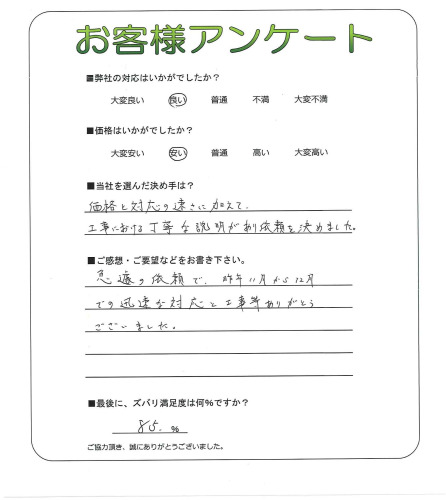 お客様アンケート
■弊社の対応はいかがでしたか?
大変良い 良い 普通 不満 大変不満
■価格はいかがでしたか?
大変安い 安い 普通 高い 大変高い
■当社を選んだ決め手は?
価格と対応の速さに加えて、
工事における丁寧な説明があり依頼を決めました。
■ご感想・ご要望などをお書き下さい。
急遽の依頼で、昨年11月から12月
での迅速な対応と工事等ありがとう
ございました。
■最後に、ズバリ満足度は何%ですか?
85. %
ご協力頂き、誠にありがとうございました。